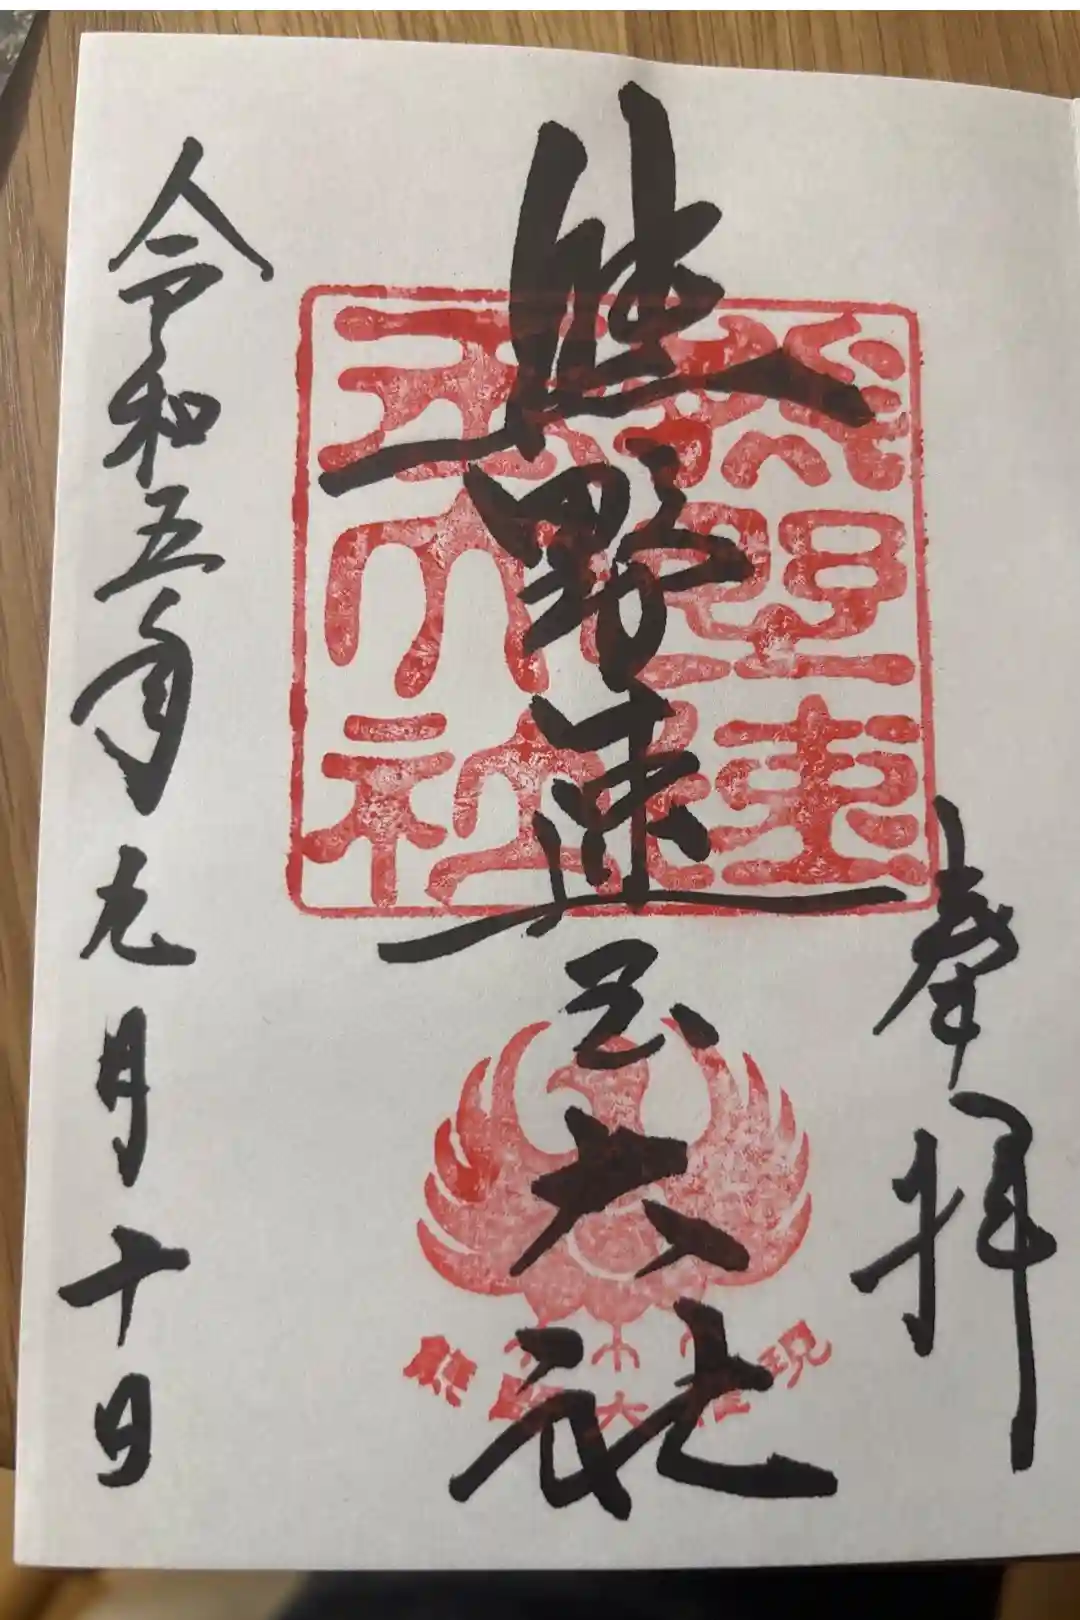 奉拝
熊野速玉大社
熊野速
玉大社
熊野大権現
令和五年九月十日